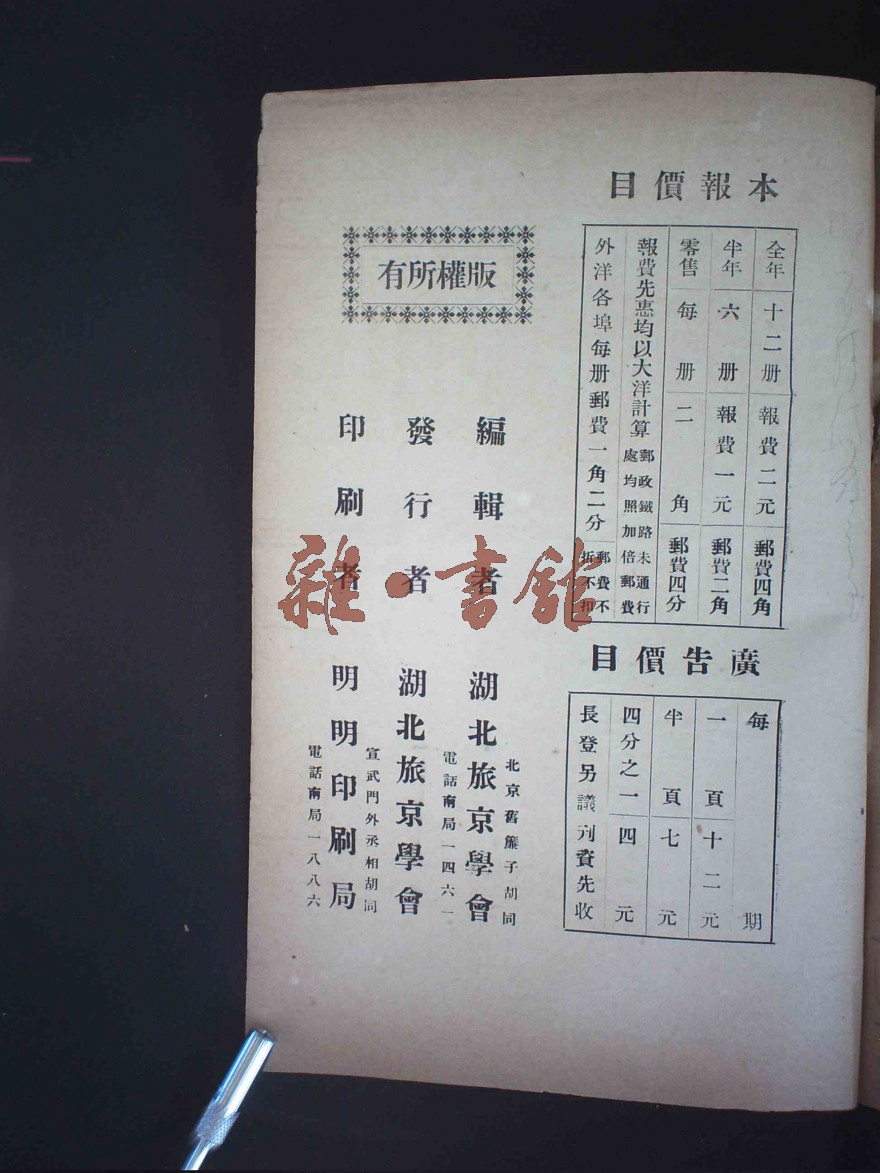 本報價目
全年 十二册 報費二元 郵費四角
半年 六册 報費一元 郵費二角
零售 每册 二角 郵費四分
報費先惠均以大洋計算 郵政鐵路未通行處均照加倍郵費
外洋各埠每册郵費一角二分 郵費不折不扣
廣告價目
每期
一頁 十二元
半頁 七元
四分之一 四元
長登另議刋費先收
版權所有
編輯者 湖北旅京學會
北京舊簾子胡同
電話南局一四六一
發行者 湖北旅京學會
印刷者 明明印刷局
宣武門外丞相胡同
電話南局一八八六
雜·書館